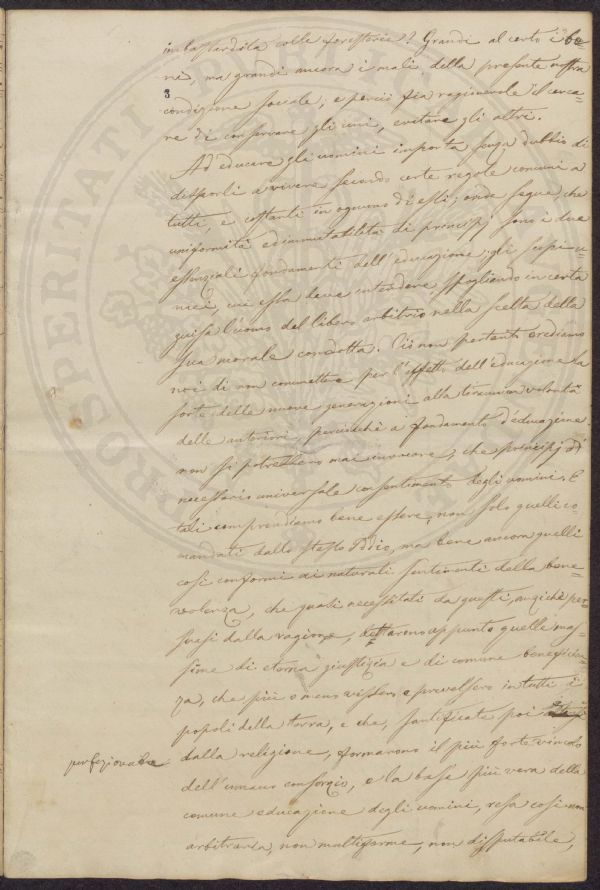 imbastardita colle forestiere? Grandi al certo i be=
ni, ma grandi ancora i mali della presente nostra
3
condizione sociale; e perciò fia ragionevole il cerca=
re di conservare gli uni, evitare gli altri.
Ad educare gli uomini importa senza dubbio di
disporli a vivere secondo certe regole comuni a
tutti, e costanti in ognuno di essi; onde segue, che
uniformità ed immutabilità di principj sono i due
essenziali fondamenti dell'educazione; gli
nici, cui essa deve intendere spogliando in certa
guisa l'uomo del libero arbitrio nella scelta della
sua morale condotta. Ciò non pertanto crediamo
noi di non commettere per l'effetto dell'educazione la
sorte delle nuove generazioni alla volontà
delle anteriori, perciocchè a fondamento d'educazione
non si potrebbero mai invocare, che principj di
necessario universale consentimento degli uomini. E
tali comprendiamo bene essere, non solo quelli co=
mandati dallo stesso Iddio, ma bene ancora quelli
così conformi ai naturali sentimenti della bene=
volenza, che quasi necessitati da questi, anzichè per
suasi dalla ragione, dettarono appunto quelle mas=
sime di eterna giustizia e di comune beneficien=
za, che più o meno vissero e prevalsero in tutti i
popoli della terra, e che, santificate poi
dalla religione, formarono il più forte vincolo
perfezionatrice
dell'umano consorzio, e la base più vera della
comune educazione degli uomini, resa così non
arbitraria, non multiforme, non disputabile,
PROSPERITATI PUBLICAE